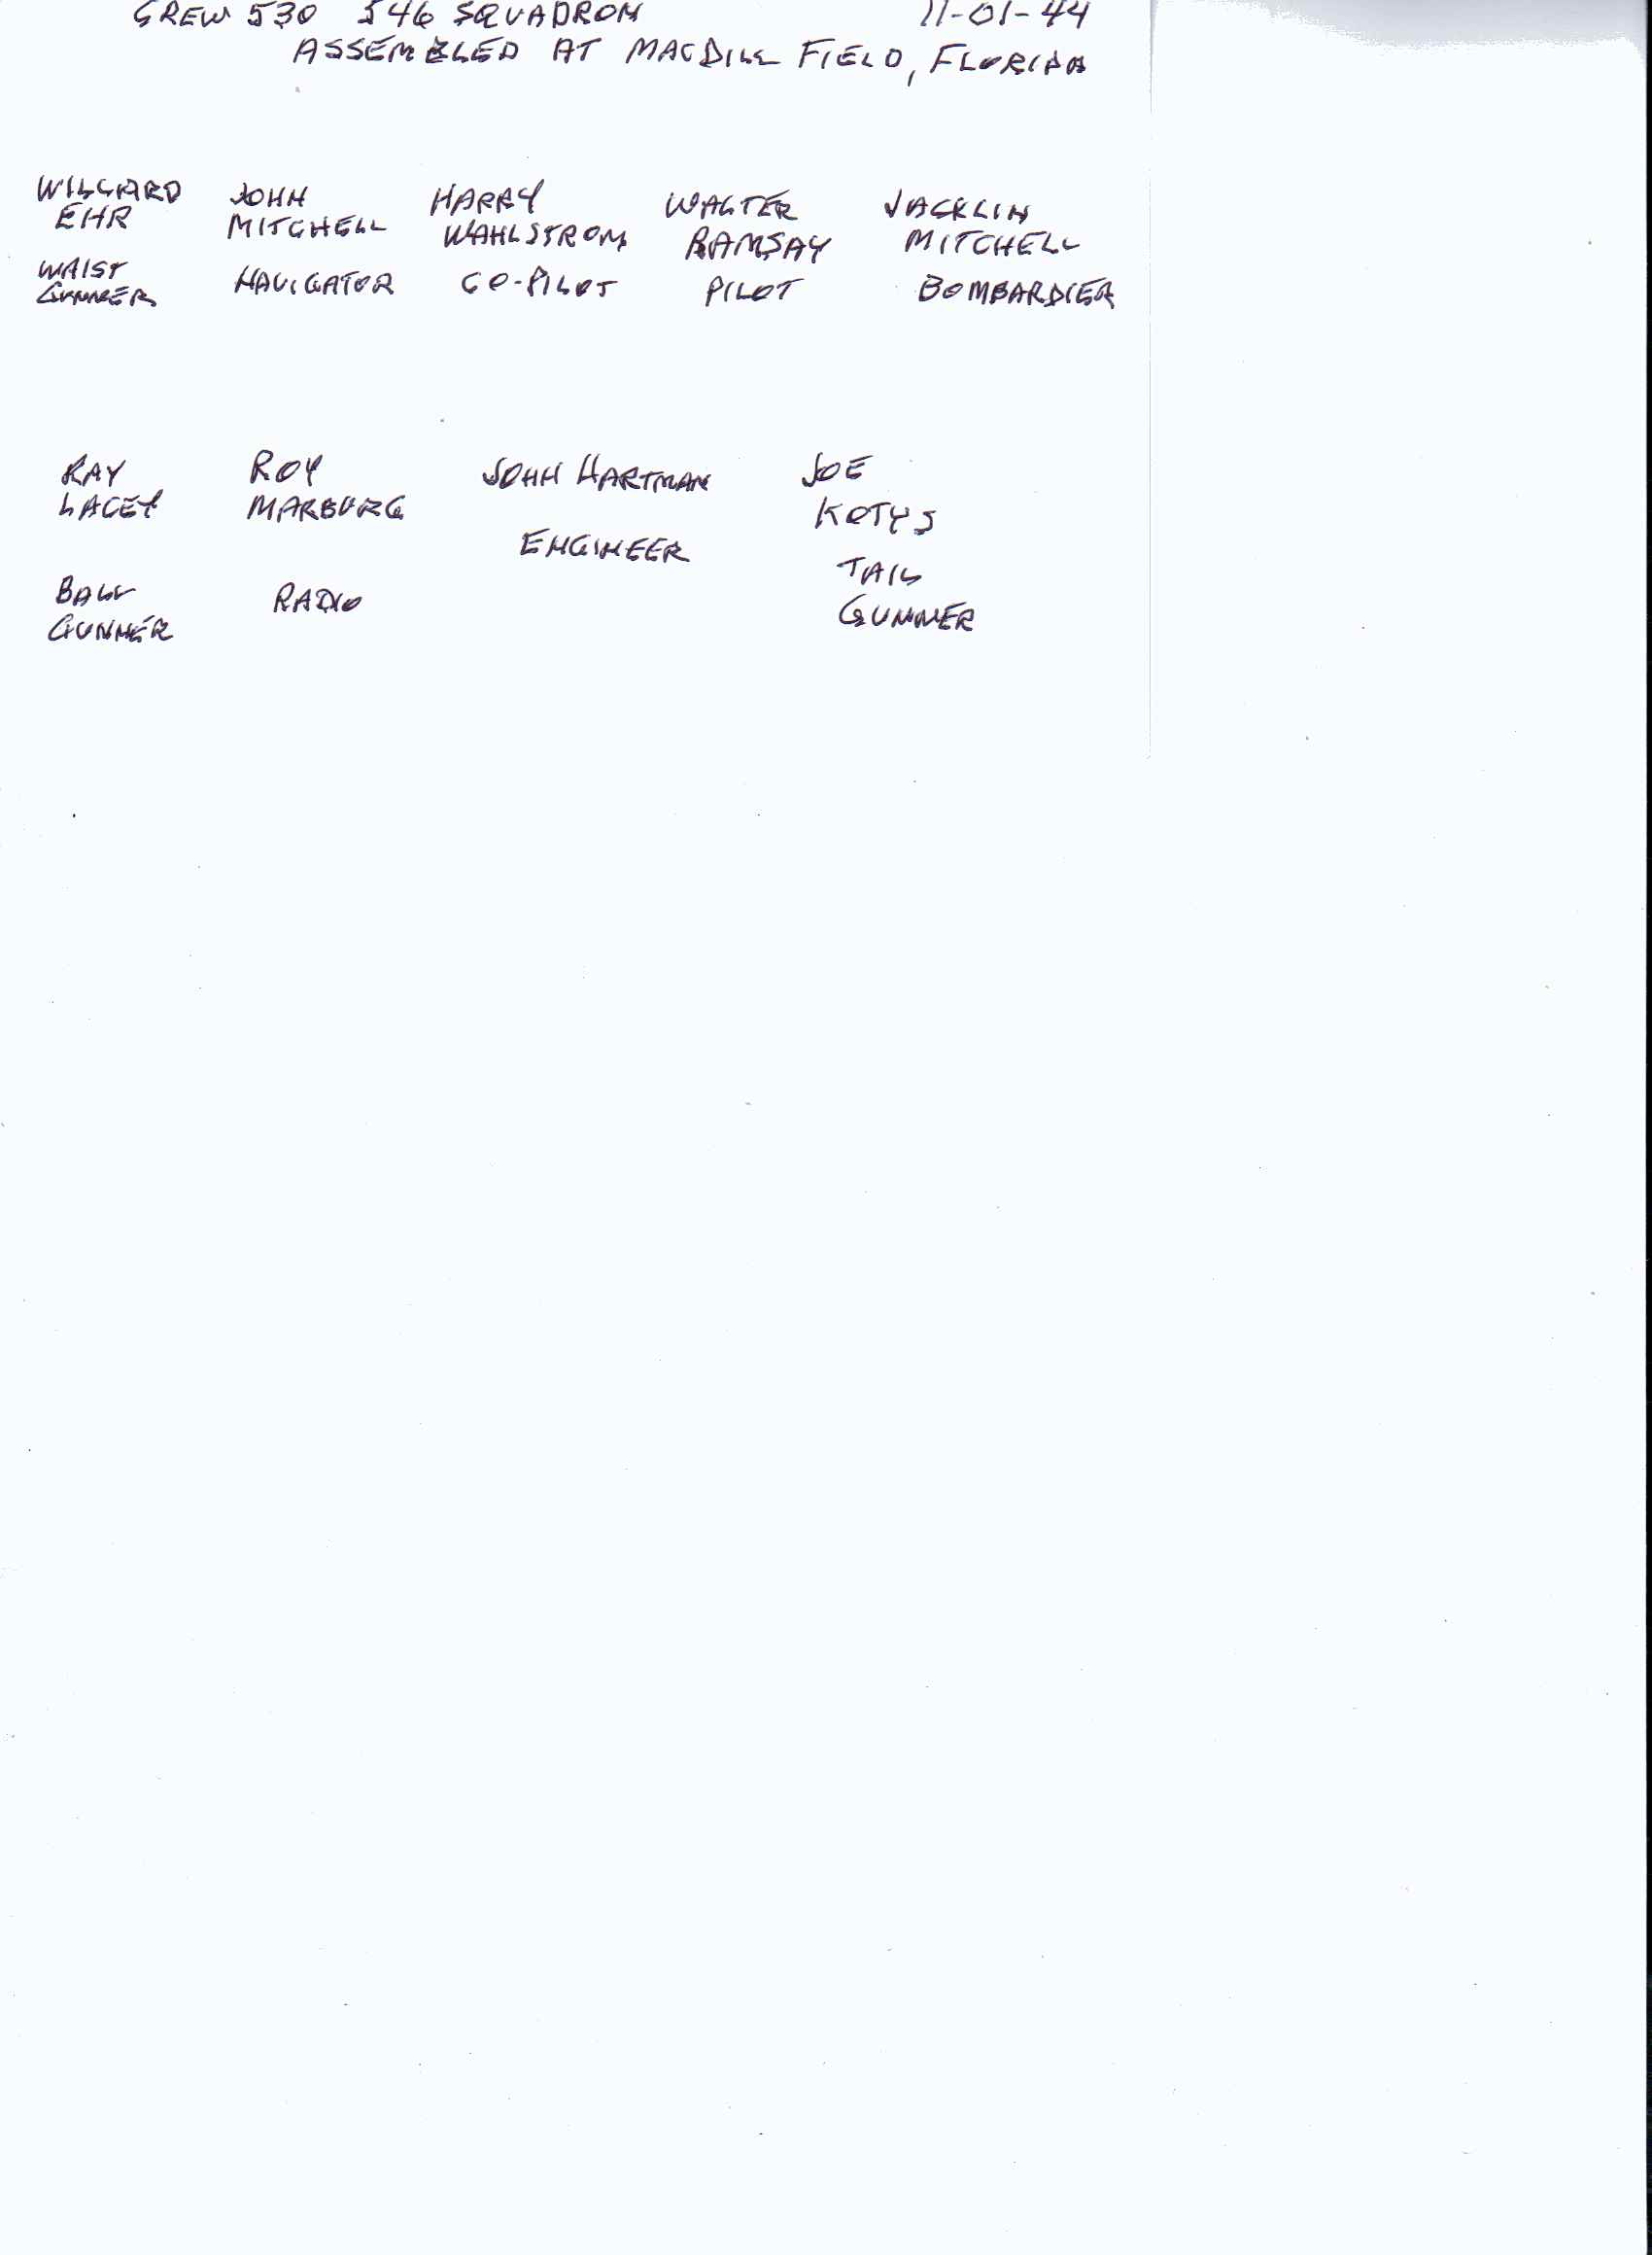 CREW 530 546 SQUADRON 11-01-44
ASSEMBLED AT MACDILL FIELD, FLORIDA
WILLARD JOHN HARRY WALTER JACKLIN
EHR MITCHELL WAHLSTROM RAMSAY MITCHELL
WAIST
GUNNER NAVIGATOR CO-PILOT PILOT BOMBARDIER
RAY ROY JOHN HARTMAN JOE
LACEY MARBURG KOTYS
ENGINEER
TAIL
BALL RADIO
GUNNER GUNNER